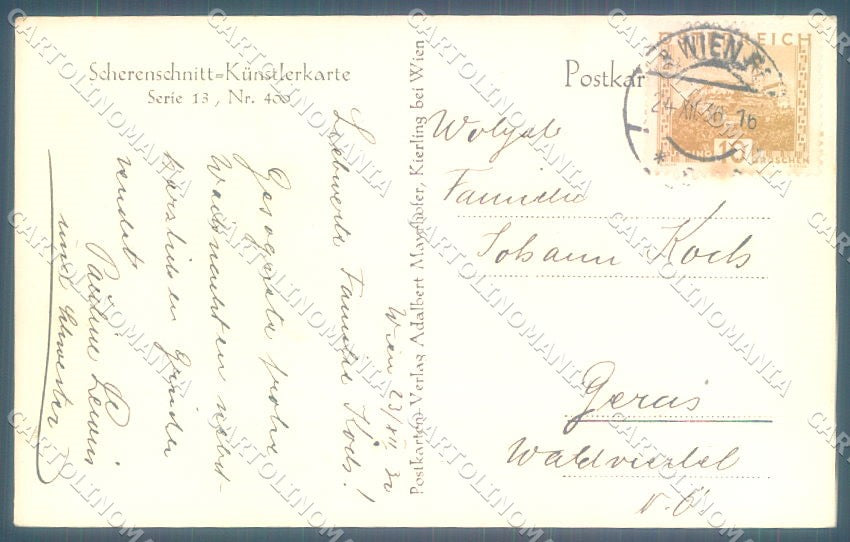 Scherenschnitt=Künstlerkarte
Serie 13, Nr. 400
Wien 23/XII. 32
Liebwerte Familie Koch!
Gesegnete frohe
Weihnachten nebst
herzlichen Grüßen
sendet
Pauline
und Schwester
Postkarten-Verlag Adalbert Mayrhofer, Kierling bei Wien
Postkar
ÖSTERREICH
WIEN
24 XII 16
10 GROSCHEN
Familie
Johann Koch
Geras
Waldviertel
N. Ö
CARTOLINOMANIA